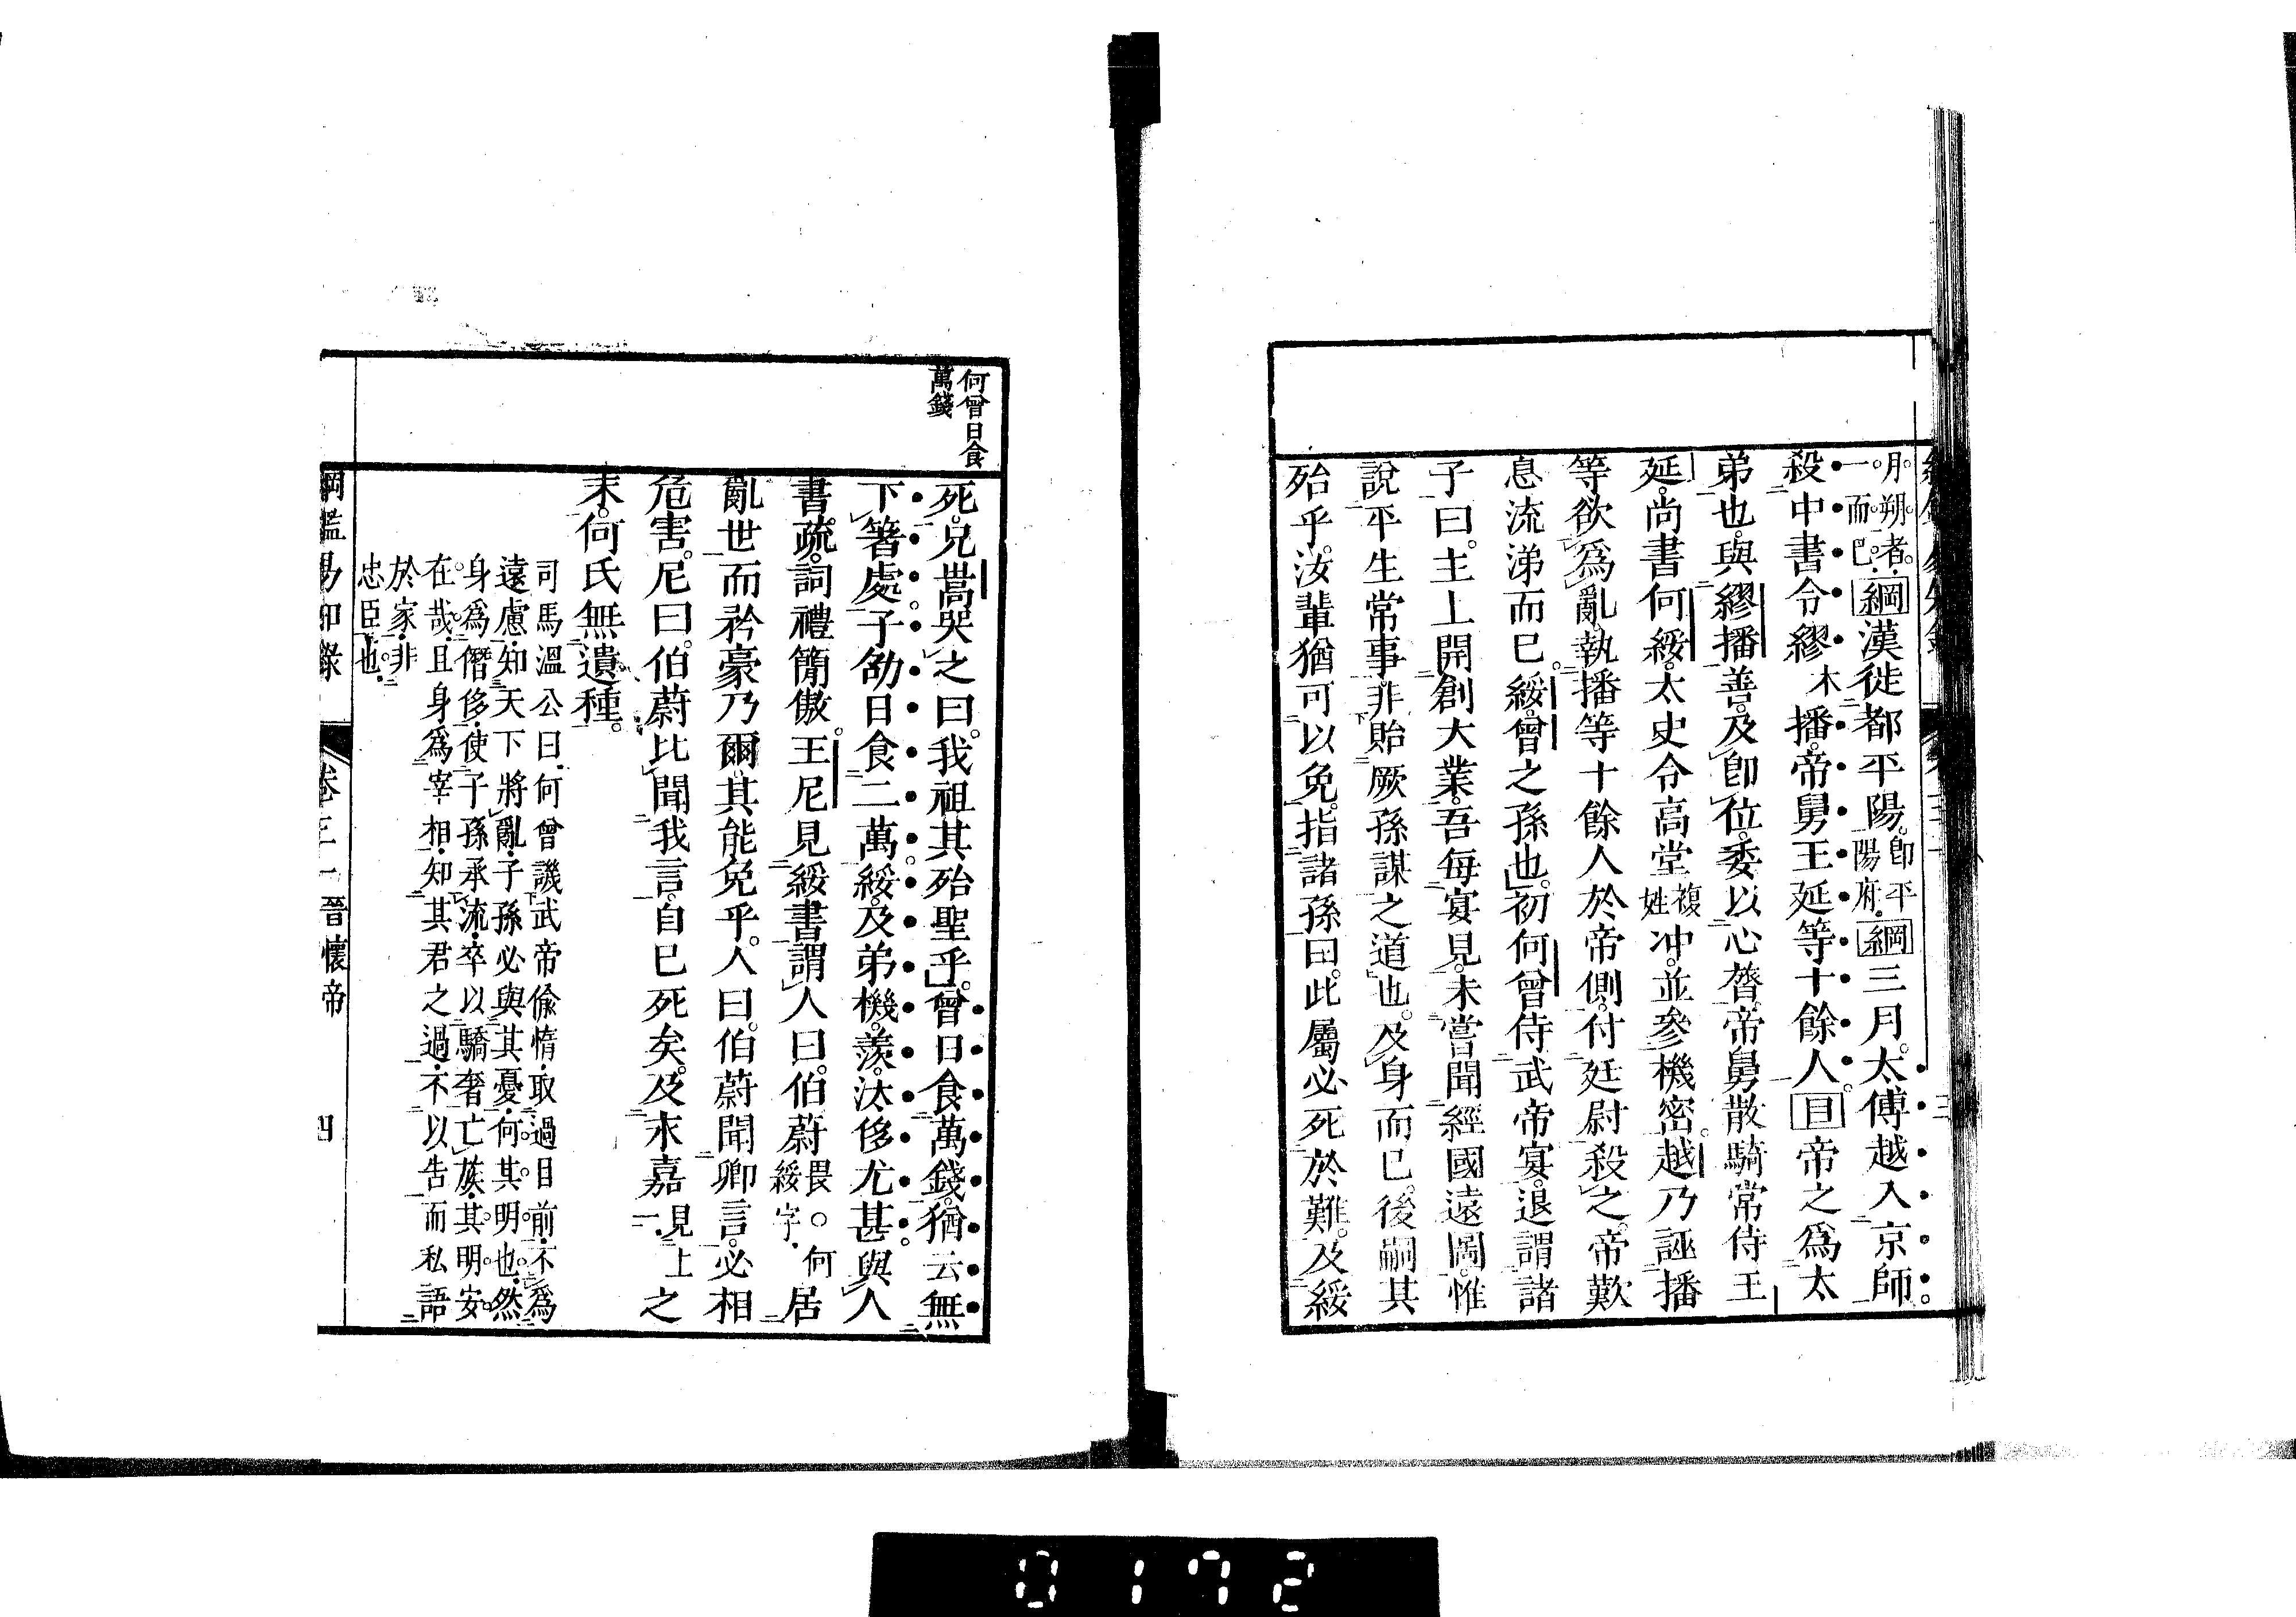 月朔者
一而已綱漢徙都平陽卽平陽府綱三月太傅越入京師
殺中書令繆木播帝舅王延等十餘人目帝之爲太
弟也與繆播善及卽位委以心膂帝舅散騎常侍王
延尚書何綏太史令高堂複姓冲並參機密越乃誣播
等欲爲亂執播等十餘人於帝側付廷尉殺之帝歎
息流涕而已綏曾之孫也初何曾侍武帝宴退謂諸
子曰主上開創大業吾每宴見未嘗聞經國遠圖惟
說平生常事非貽厥孫謀之道也及身而已後嗣其
殆乎汝輩猶可以免指諸孫曰此屬必死於難及綏
何曾日食
萬錢
死兄嵩哭之曰我祖其殆聖乎曾日食萬錢猶云無
下箸處子劭日食二萬綏及弟機羨汰侈尤甚與人
書疏詞禮簡傲王尼見綏書謂人曰伯蔚畏。何綏字居
亂世而矜豪乃爾其能免乎人曰伯蔚聞卿言必相
危害尼曰伯蔚比聞我言自已死矣及末嘉見上一之
末何氏無遺種
司馬溫公曰何曾譏武帝偸惰取過目前不爲
遠慮知天下將亂子孫必與其憂何其明也然
身爲僭侈使子孫承流卒以驕奢亡族其明安
在哉且身爲宰相知其君之過不以告而私語
於家非
忠臣也
綱鑑易知錄 卷三一 晉懷帝 四